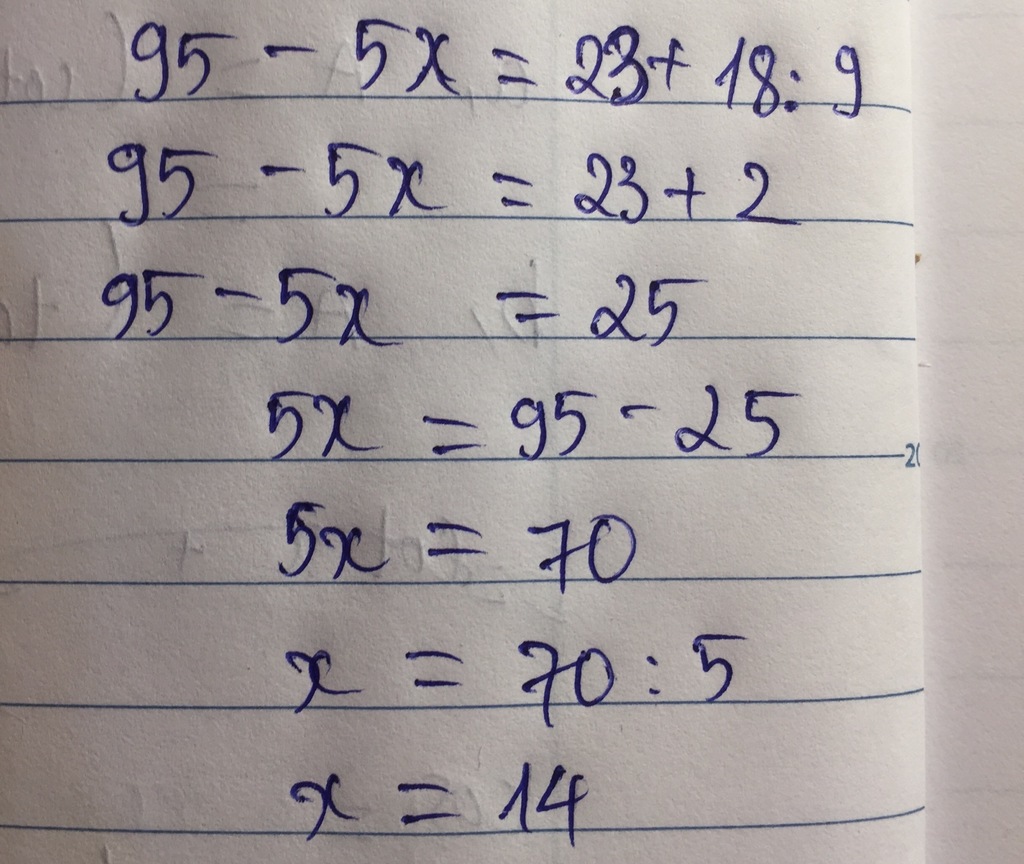 95 - 5x = 23 + 18 : 9
95 - 5x = 23 + 2
95 - 5x = 25
5x = 95 - 25
5x = 70
x = 70 : 5
x = 14